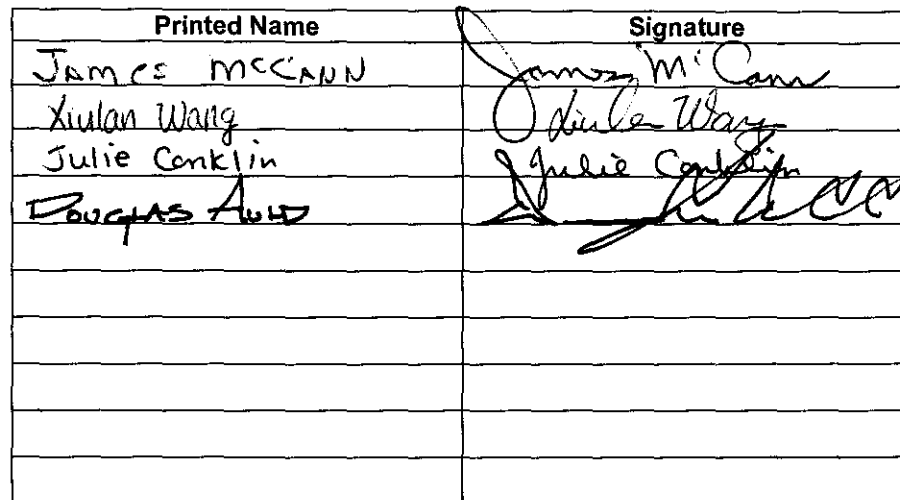 Printed Name Signature
JAMES MCCANN James McCann
Xiulan Wang Xiulan Wang
Julie Conklin Julie Conklin
DOUGLAS AULD